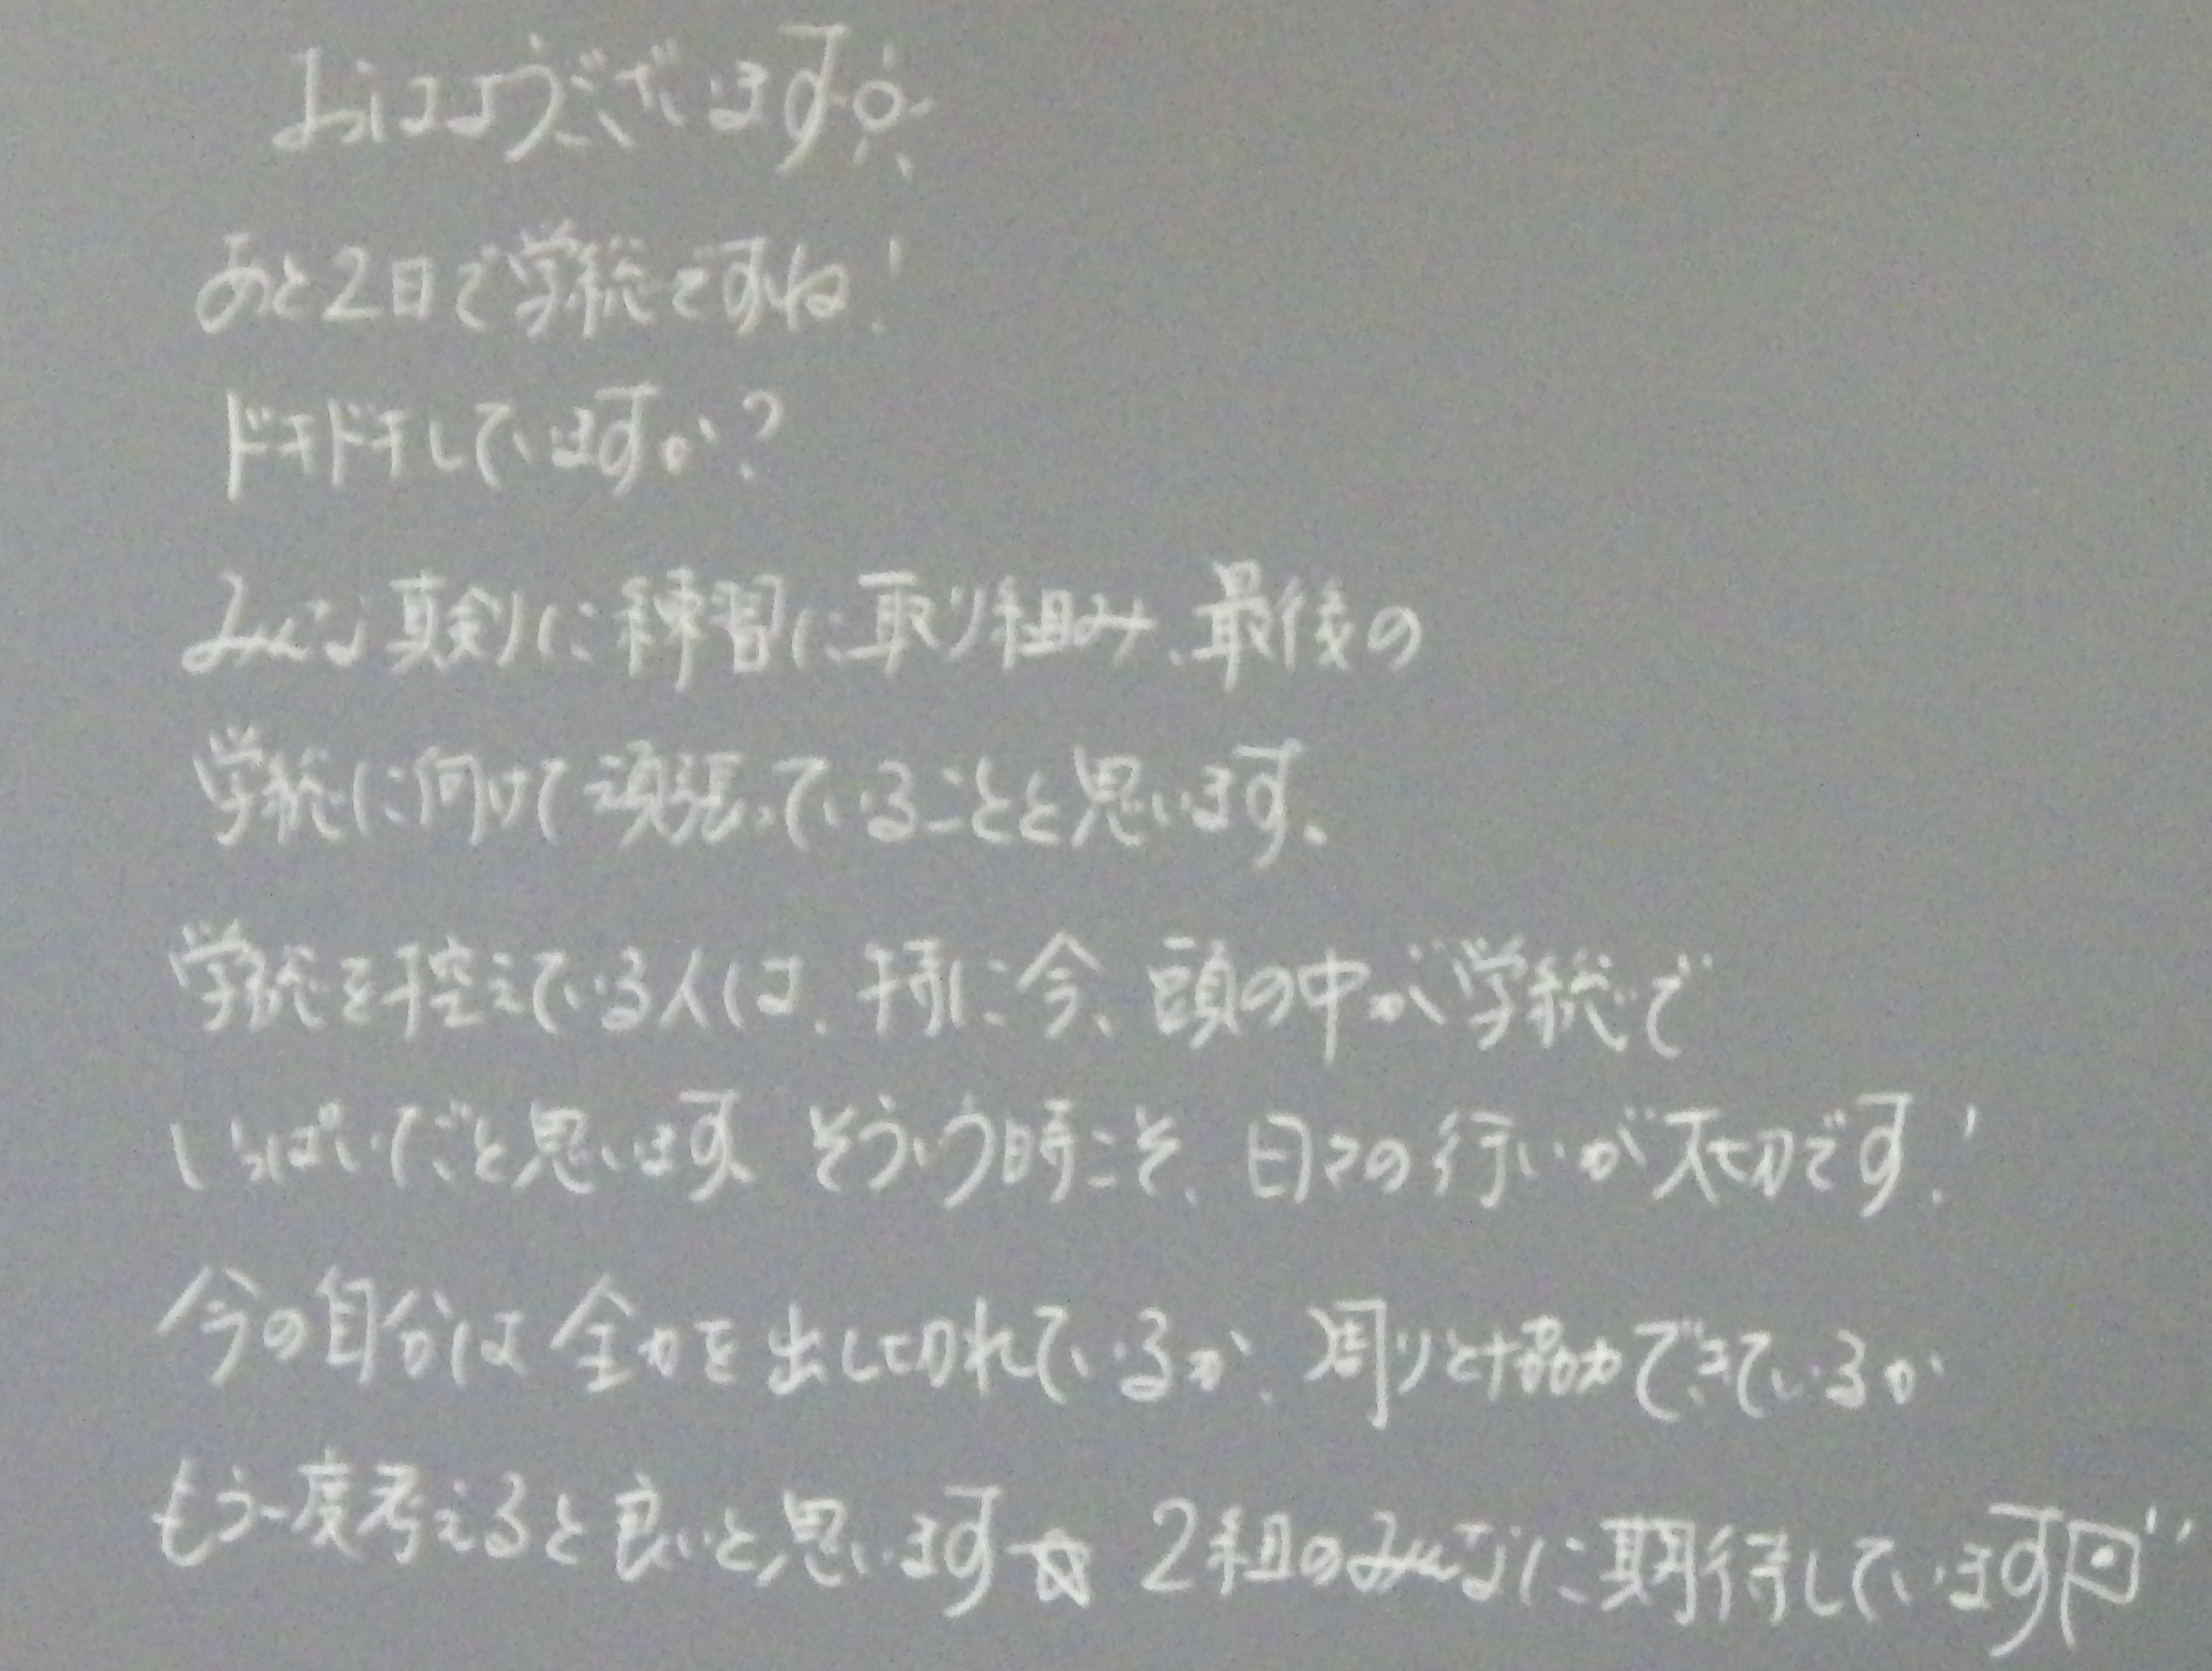 おはようございます
あと2日で学総ですね!
ドキドキしていますか?
みんな真剣に練習に取り組み、最後の
学総に向けて頑張っていることと思います。
学総を控えている人は、特に今、頭の中が学総で
いっぱいだと思います。そういう時こそ、日々の行いが大切です!
今の自分は全力を出し切れているか、周りと協力できているか
もう一度考えると良いと思います☆ 2組のみんなに期待しています